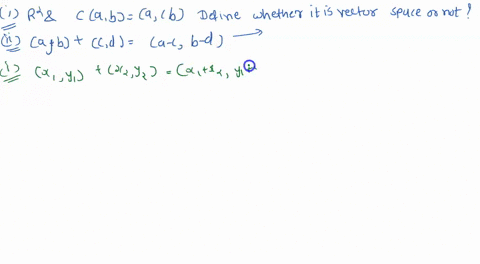 (i) R²& C(a,b)=(a,cb) Define whether it is vector space or not?
(ii) (a+b) + (c,d) = (a-c, b-d) →
(i) (x₁,y₁) + (x₂,y₂) = (x₁+x₂, y₁